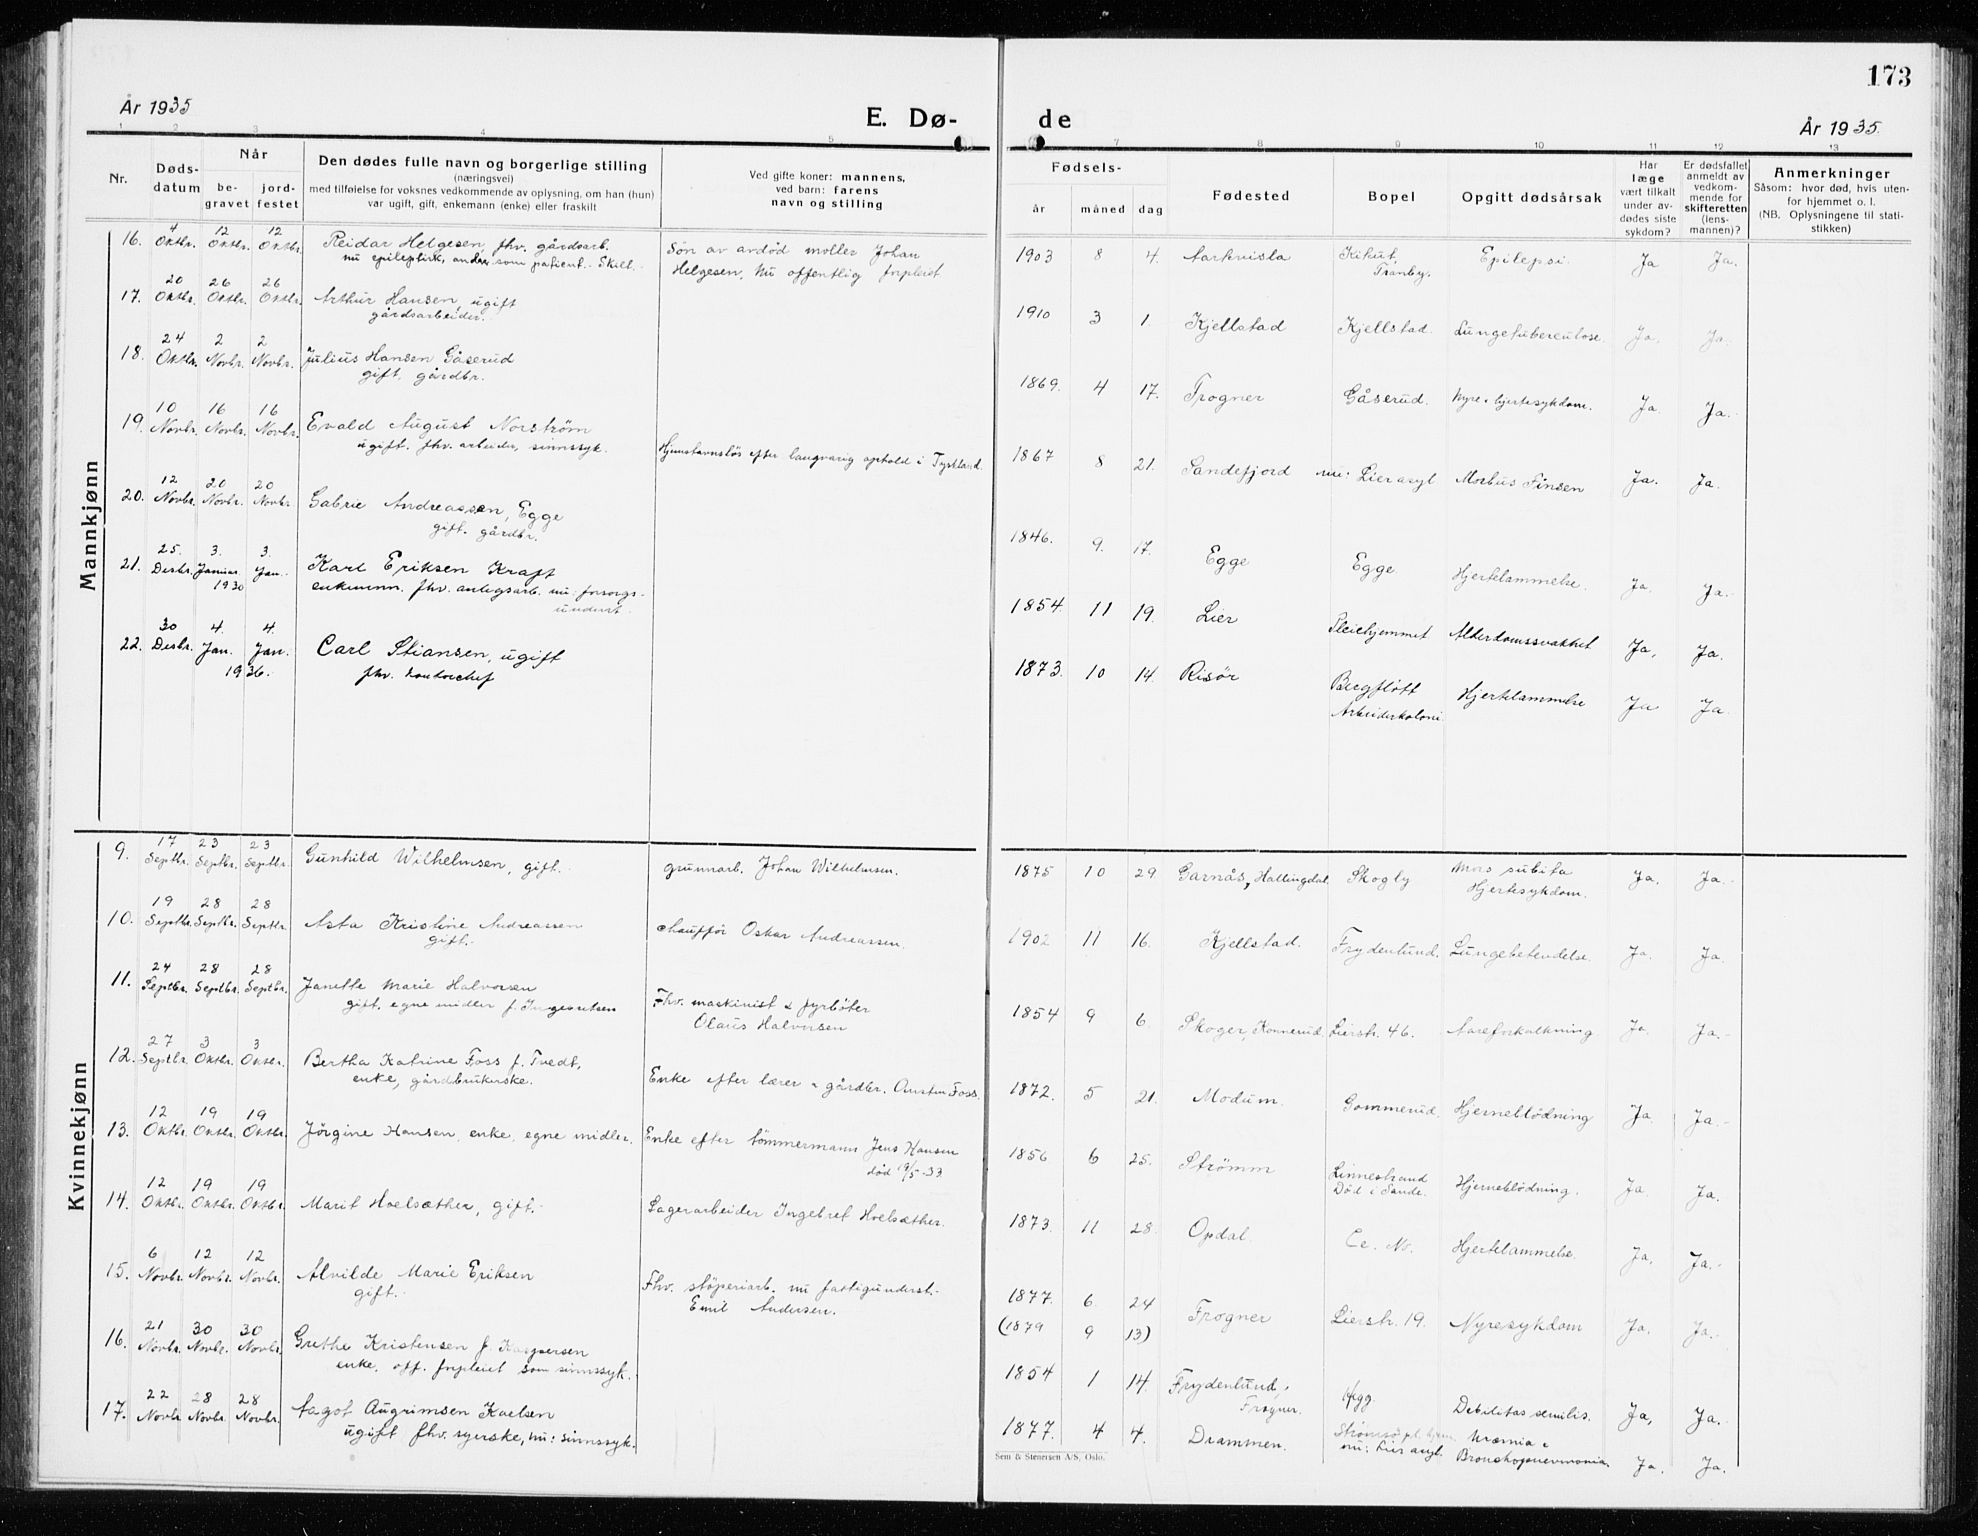 173
År 1935
E. Dø-
de
År 1935.
1 2 3 4 5 7 8 9 10 11 12 13
Nr.
Døds-
datum
Når
be-
gravet
jord-
festet
Den dødes fulle navn og borgerlige stilling
(næringsvei)
med tilføielse for voksnes vedkommende av oplysning, om han (hun)
var ugift, gift, enkemann (enke) eller fraskilt
Ved gifte koner: mannens,
ved barn: farens
navn og stilling
Fødsels-
år måned dag
Fødested
Bopel
Opgitt dødsårsak
Har
læge
vært tilkalt
under av-
dødes siste
sykdom?
Er dødsfallet
anmeldt av
vedkom-
mende for
skifteretten
(lens-
mannen)?
Anmerkninger
Såsom: hvor død, hvis uten-
for hjemmet o. l.
(NB. Oplysningene til stati-
stikken)
Mannkjønn
16. 4 Oktbr. 12 Oktbr. 12 Oktbr. Reidar Helgesen, fhv. gårdsarb. Søn av avdød møller Johan 1903 8 4. Kihut, Epilepsi. Ja Ja.
nu epileptisk, som patient. Helgesen. Nu offentlig forpleiet Tranby.
17. 20 Oktbr. 26 Oktbr. 26 Oktbr. Arthur Hansen, ugift 1910 3 1. Kjellstad Kjellstad. Lungetuberculose. Ja. Ja.
gårdsarbeider.
18. 24 Oktbr. 2 Novbr. 2 Novbr. Julius Hansen Gåserud 1869. 4 17. Frogner Gåserud. Nyre & hjertesykdom. Ja. Ja.
gift, gårdbr.
19. 10 Novbr. 16 Novbr. 16 Novbr. Evald August Norstrøm Hjemstavnsløs efter langvarig ophold i Tyskland. 1867 8 21. Sandefjord nu: Lier asyl Morbus Ja. Ja.
ugift. fhv. arbeider, sinnssyk.
20. 12 Novbr. 20 Novbr. 20 Novbr. Gabrie Andreassen, Egge 1846. 9. 17. Egge Egge. Hjertelammelse. Ja. Ja.
gift. gårdbr.
21. 25. Desbr. 3. Januar 3. Jan. Karl Eriksen Kraft 1854. 11 19. Lier Pleiehjemmet Alderdomssvakhet Ja. Ja.
1930 enkemann. fhv. anlegsarb. nu: forsorgs-
underst.
22. 30 Desbr. 4. Jan. 4. Jan. Carl Stiansen, ugift 1873. 10 14. Risör Bergfløtt Hjertelammelse Ja Ja.
1936. fhv. kontorchef Arbeiderkoloni.
Kvinnekjønn
9. 17 Septbr. 23 Septbr. 23 Septbr. Gunhild Wilhelmsen, gift. grunnarb. Johan Wilhelmsen. 1875 10 29. Garnås, Hallingdal. Skogly Mors subita Ja. Ja.
Hjertesykdom.
10. 19 Septbr. 28 Septbr. 28 Septbr. Asta Kristine Andreassen chaufför Oskar Andreassen. 1902 11 16. Kjellstad. Frydenlund. Lungebetendelse. Ja. Ja.
gift.
11. 24 Septbr. 28 Septbr. 28 Septbr. Janette Marie Halvorsen Fhv. maskinist & fyrböter 1854 9 6. Skoger, Konnerud. Lierstr. 46. Aareforkalkning Ja. Ja.
gift. egne midler f. Ingebretsen Olaus Halvorsen
12. 27 Septbr. 3 Oktbr. 3 Oktbr. Bertha Katrine Foss f. Tvedt, Enke efter lærer & gårdbr. Foss. 1872. 5 21. Modum. Gommerud. Hjerneblödning Ja. Ja.
enke, gårdbrukerske.
13. 12 Oktbr. 19 Oktbr. 19 Oktbr. Jörgine Hansen, enke, egne midler. Enke efter tömmermann Jens Hansen 1856 6 25. Strömm Linnestrand Hjerneblödning. Ja. Ja.
död 9/5-33. Död i Sande.
14. 12 Oktbr. 19 Oktbr. 19 Oktbr. Marit Hoelsæther, gift. Lagerarbeider Ingebret Hoelsæther. 1873. 11 28. Opdal. Hjertelammelse. Ja. Ja.
15. 6 Novbr. 12 Novbr. 12 Novbr. Alvilde Marie Eriksen Fhv. stöperiarb. nu fattigunderst. 1877. 6. 24 Frogner Lierstr. 19. Nyresykdom Ja. Ja.
gift. Emil Andersen. (1879 9 13)
16. 21 Novbr. 30 Novbr. 30 Novbr. Grethe Kristensen f. Kaspersen 1854 1 14. Frydenlund, Debilitas senilis. Ja. Ja.
enke, off. forpleiet som sinnssyk. Frogner.
17. 22 Novbr. 28 Novbr. 28 Novbr. Aagot Augrimsen Karlsen 1877. 4 4. Drammen. Uræmia & Ja. Ja.
ugift fhv. syerske, nu: sinnssyk. nu: Lier asyl. Bronchopneumonia.
Sem & Stenersen A/S, Oslo.